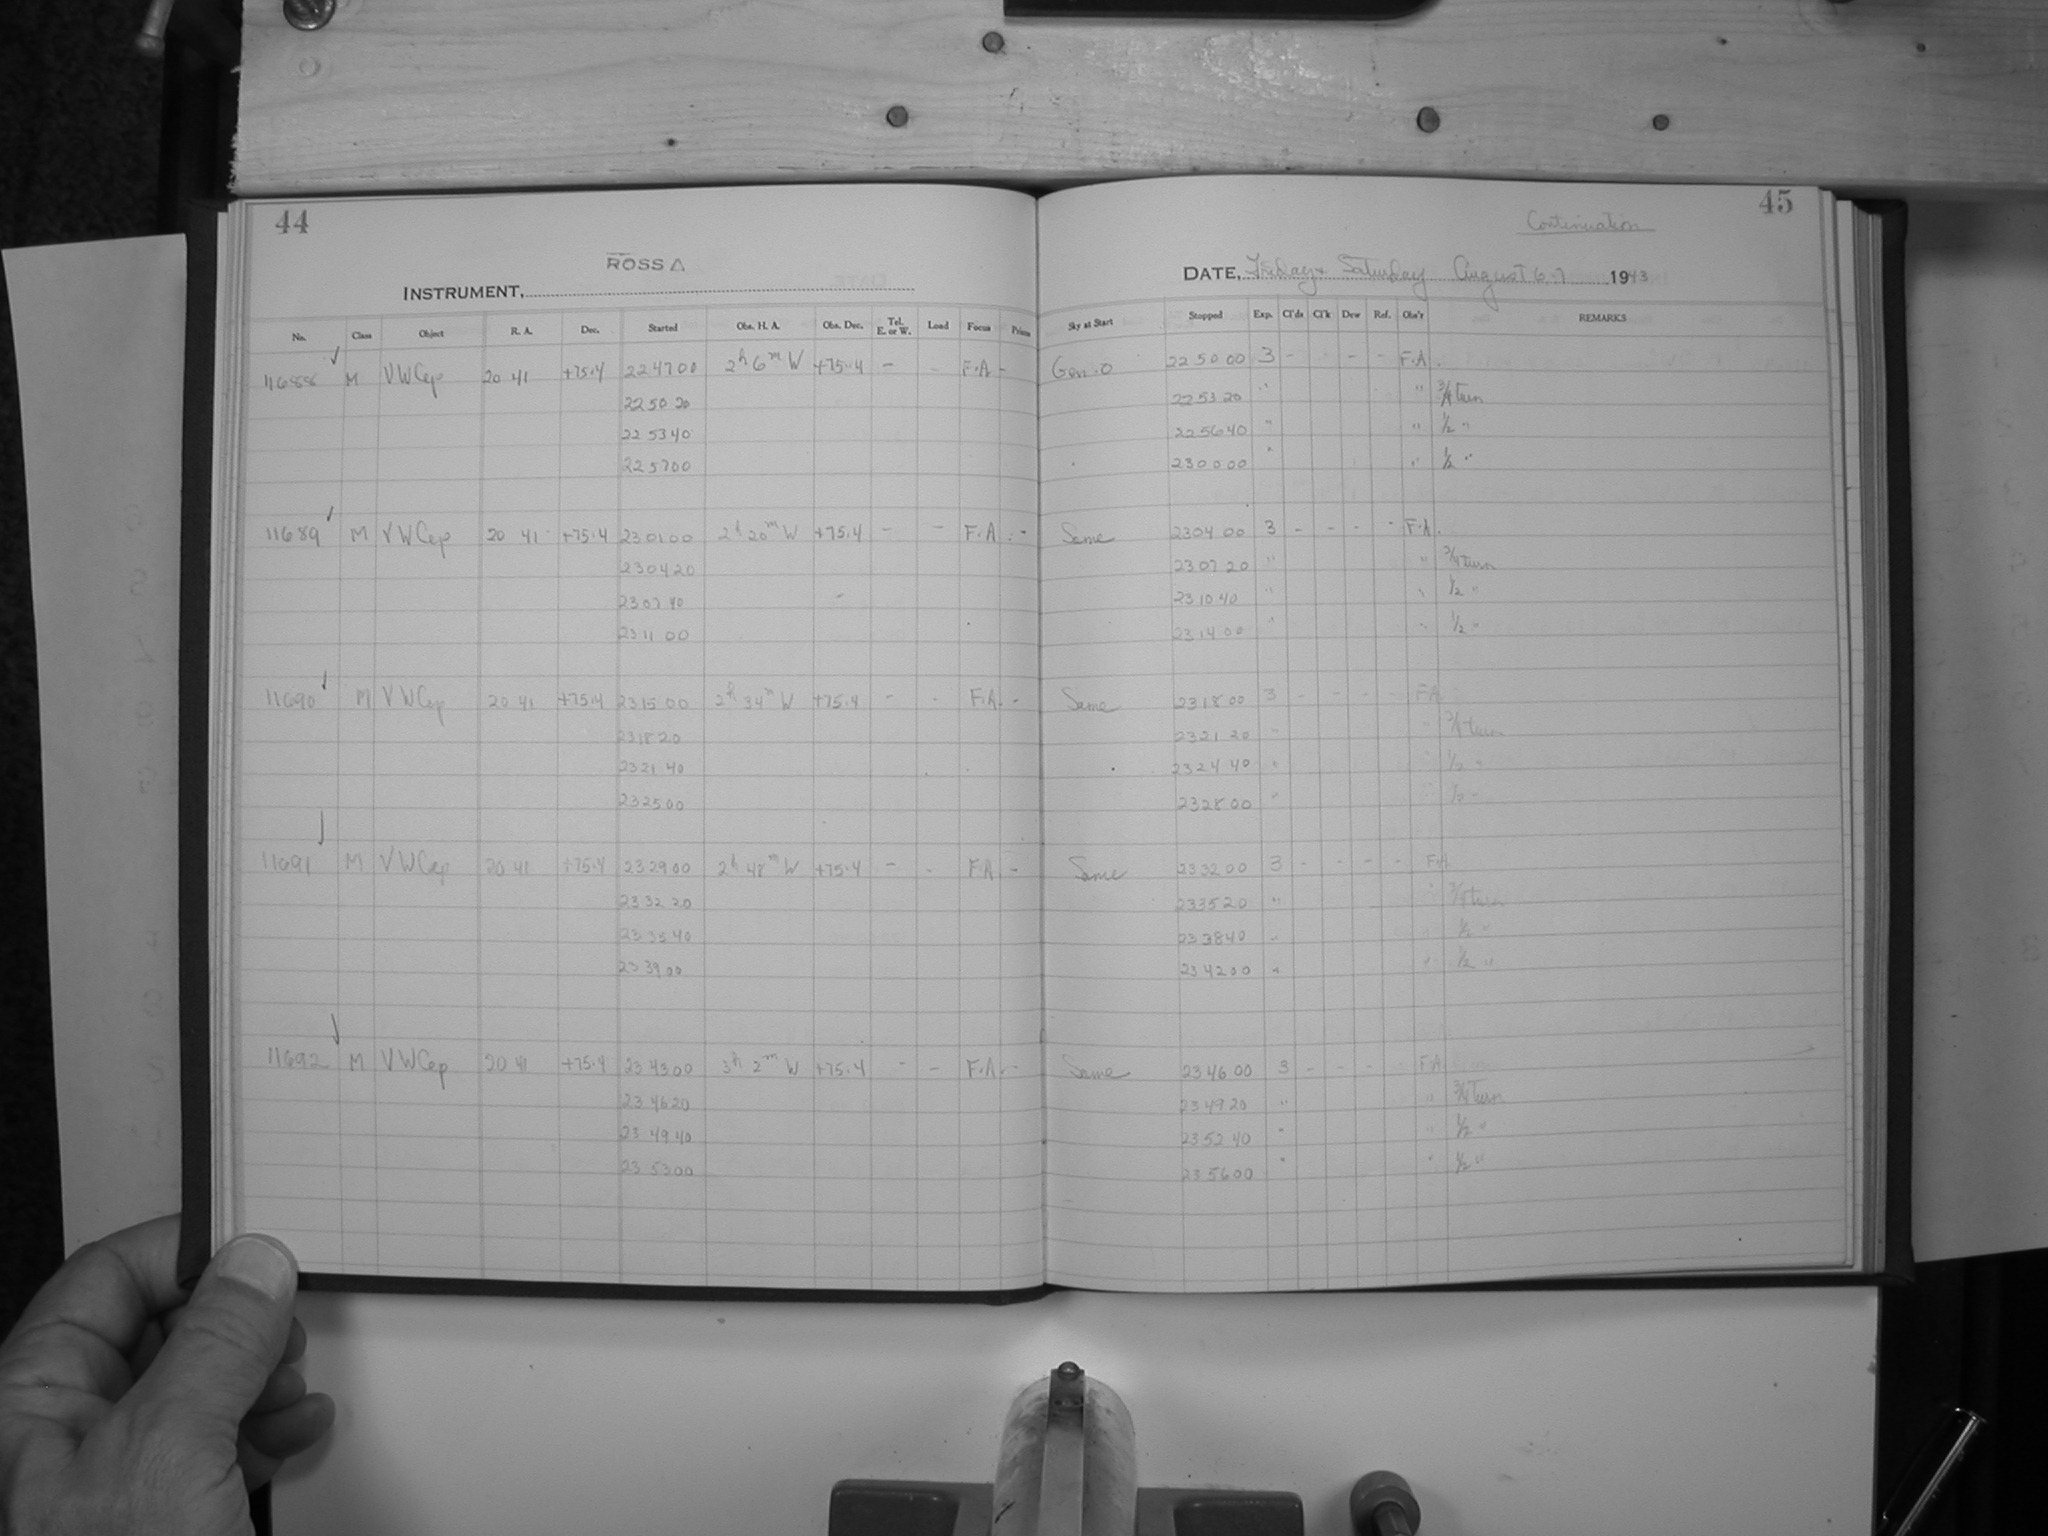 44
ROSS A
INSTRUMENT,
No. Class Object R. A. Dec. Started Obs. H. A. Obs. Dec. Tel. E. or W. Load Focus Prism
11688 ✓ M VW Cep 20 41 +75.4 22 47 00 2h 6m W +75.4 - - F.A -
22 50 20
22 53 40
22 57 00
11689 ✓ M VW Cep 20 41 +75.4 23 01 00 2h 20m W +75.4 - - F.A -
23 04 20
23 07 40
23 11 00
11690 ✓ M VW Cep 20 41 +75.4 23 15 00 2h 34m W +75.4 - - F.A. -
23 18 20
23 21 40
23 25 00
11691 ✓ M VW Cep 20 41 +75.4 23 29 00 2h 48m W +75.4 - - F.A -
23 32 20
23 35 40
23 39 00
11692 ✓ M VW Cep 20 41 +75.4 23 43 00 3h 2m W +75.4 - - F.A -
23 46 20
23 49 40
23 53 00
45
Continuation
DATE, Friday & Saturday August 6-7 1943
Sky at Start Stopped Exp. Cl'ds Cl'k Dew Ref. Obs'r REMARKS
Gen. O 22 50 00 3 - - - F.A.
22 53 20 " " 3/4 turn
22 56 40 " " 1/2 "
23 00 00 " " 1/2 "
Same 23 04 00 3 - - - - F.A.
23 07 20 " " 3/4 turn
23 10 40 " " 1/2 "
23 14 00 " " 1/2 "
Same 23 18 00 3 - - - - F.A
23 21 20 " " 3/4 turn
23 24 40 " " 1/2 "
23 28 00 " " 1/2 "
Same 23 32 00 3 - - - - F.A.
23 35 20 " " 3/4 turn
23 38 40 " " 1/2 "
23 42 00 " " 1/2 "
Same 23 46 00 3 - - - - F.A
23 49 20 " " 3/4 turn
23 52 40 " " 1/2 "
23 56 00 " " 1/2 "